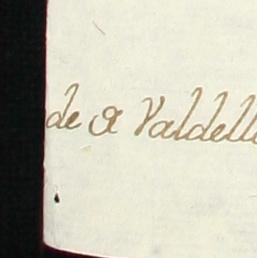 de a Valdell